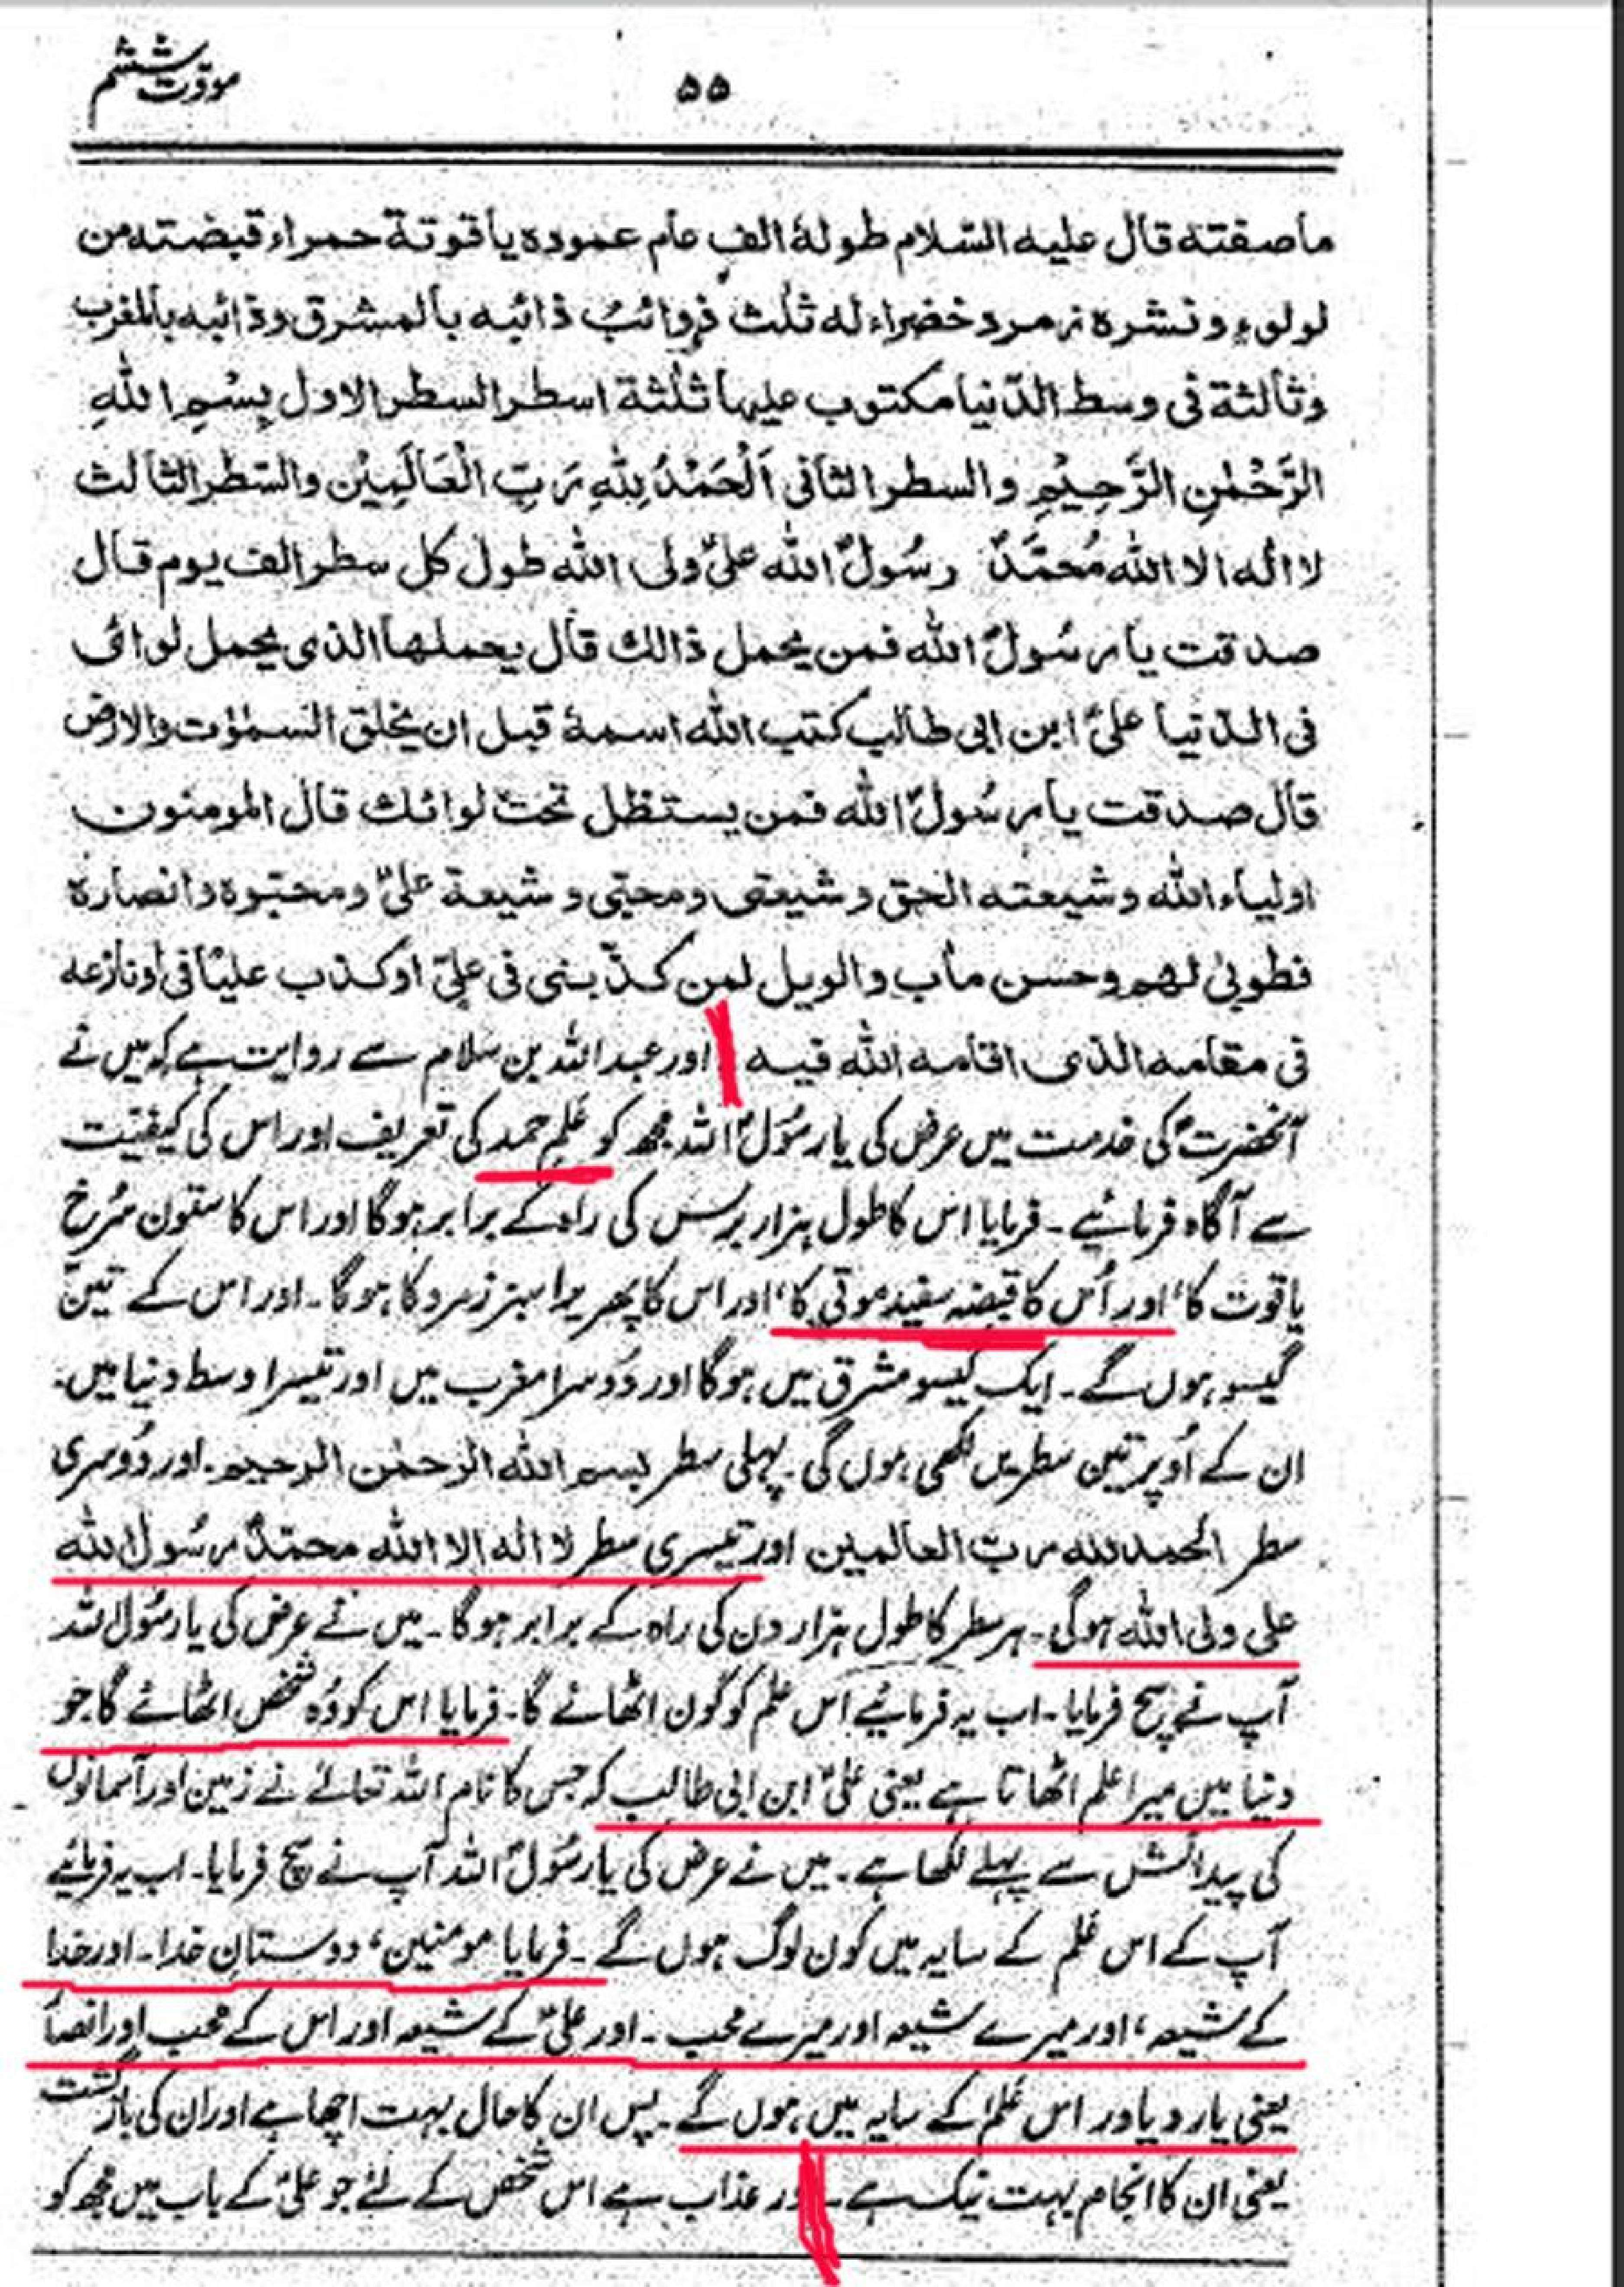 مودّت ششم
۵۵
ماصفته قال علیه السّلام طولهٗ الف عام عموده یاقوتة حمراء قبضته من
لولوء و نشره زمرد خضراء له ثلٰث ذوائب ذائبه بالمشرق وذائبه بالمغرب
وثالثة فی وسط الدّنیا مکتوب علیها ثلٰثة اسطر السطر الاول بِسْمِ اللّٰهِ
الرَّحْمٰنِ الرَّحِیْمِ والسطر الثانی اَلْحَمْدُ لِلّٰهِ رَبِّ الْعَالَمِیْن والسّطر الثالث
لا اله الا الله مُحمَّدٌ رسُولؐ الله علیؑ ولی الله طول کل سطر الف یوم قال
صدقت یا رسُولؐ الله فمن یحمل ذالك قال یحملها الذی یحمل لوائی
فی الدّنیا علیؑ ابن ابی طالب کتب الله اسمهٗ قبل ان یخلق السمٰوٰت والارض
قال صدقت یا رسُولؐ الله فمن یستظل تحت لوائك قال المومنون
اولیاء الله وشیعته الحق و شیعتی ومحبّی و شیعة علیؑ ومحبّوه وانصاره
فطوبیٰ لهم وحسن ماٰب والویل لمن کذّبنی فی علیؑ او کذب علیًا فی اونازعه
فی مقامه الذی اقامه الله فیه اور عبداللّٰہ بن سلام سے روایت ہے کہ میں نے
آنحضرتؐ کی خدمت میں عرض کی یا رسُولؐ اللّٰہ مجھ کو عَلمِ حمد کی تعریف اور اس کی کیفیّت
سے آگاہ فرمائیے ۔ فرمایا اس کا طول ہزار برس کی راہ کے برابر ہوگا اور اس کا ستون سُرخ
یاقوت کا، اور اُس کا قبضہ سفید موتی کا، اور اس کا پھریرا سبز زمرد کا ہوگا ۔ اور اس کے تین
گیسو ہوں گے ۔ ایک گیسو مشرق میں ہوگا اور دُوسرا مغرب میں اور تیسرا وسط دنیا میں ۔
ان کے اُوپر تین سطریں لکھی ہوں گی ۔ پہلی سطر بسم الله الرحمٰن الرحیم ۔ اور دُوسری
سطر الحمد لله ربّ العالمین اور تیسری سطر لا اله الا الله محمّدؐ رسُول الله
علی ولی الله ہوگی ۔ ہر سطر کا طول ہزار دن کی راہ کے برابر ہوگا ۔ میں نے عرض کی یا رسُول اللّٰہ
آپ نے سچ فرمایا ۔ اب یہ فرمائیے اس عَلم کو کون اٹھائے گا ۔ فرمایا اس کو وُہ شخص اٹھائے گا جو
دنیا میں میرا علم اٹھاتا ہے یعنی علیؑ ابن ابی طالب کہ جس کا نام اللّٰہ تعالےٰ نے زمین اور آسمانوں
کی پیدائش سے پہلے لکھا ہے ۔ میں نے عرض کی یا رسُولؐ اللّٰہ آپ نے سچ فرمایا ۔ اب یہ فرمائیے
آپ کے اس عَلم کے سایہ میں کون لوگ ہوں گے ۔ فرمایا مومنین، دوستانِ خدا ۔ اور خدا
کے شیعہ، اور میرے شیعہ اور میرے محب ۔ اور علیؑ کے شیعہ اور اس کے محب اور انصار
یعنی یار و یاور اس عَلم کے سایہ میں ہوں گے ۔ پس ان کا حال بہت اچھا ہے اور ان کی بازگشت
یعنی ان کا انجام بہت نیک ہے ۔ اور عذاب ہے اس شخص کے لئے جو علیؑ کے باب میں مجھ کو